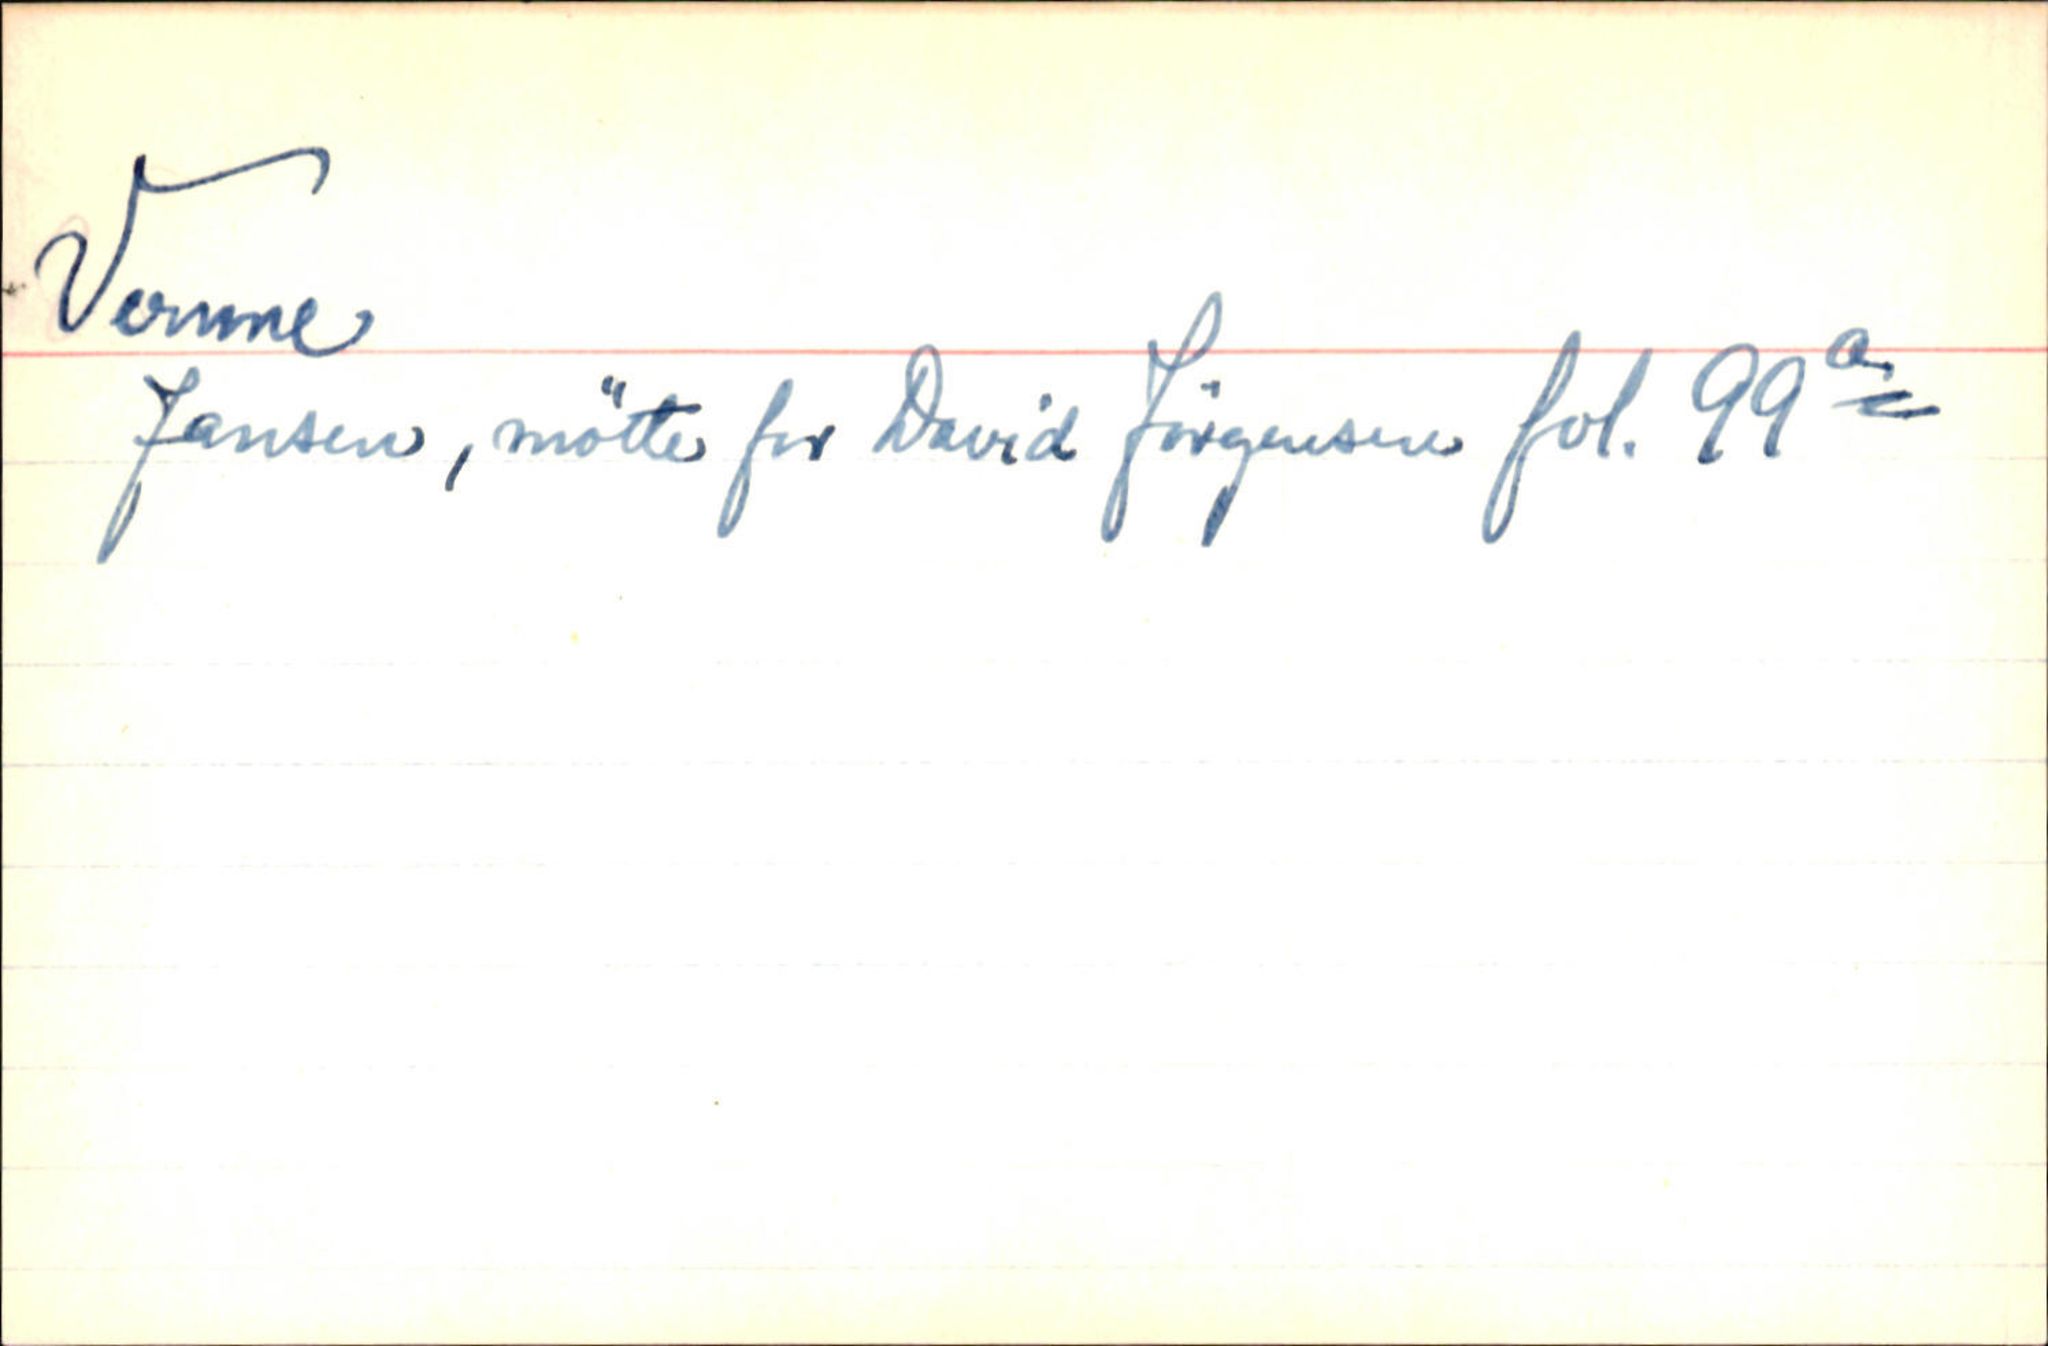 Vernme
Jansen, mötte for David Jörgensen fol. 99a